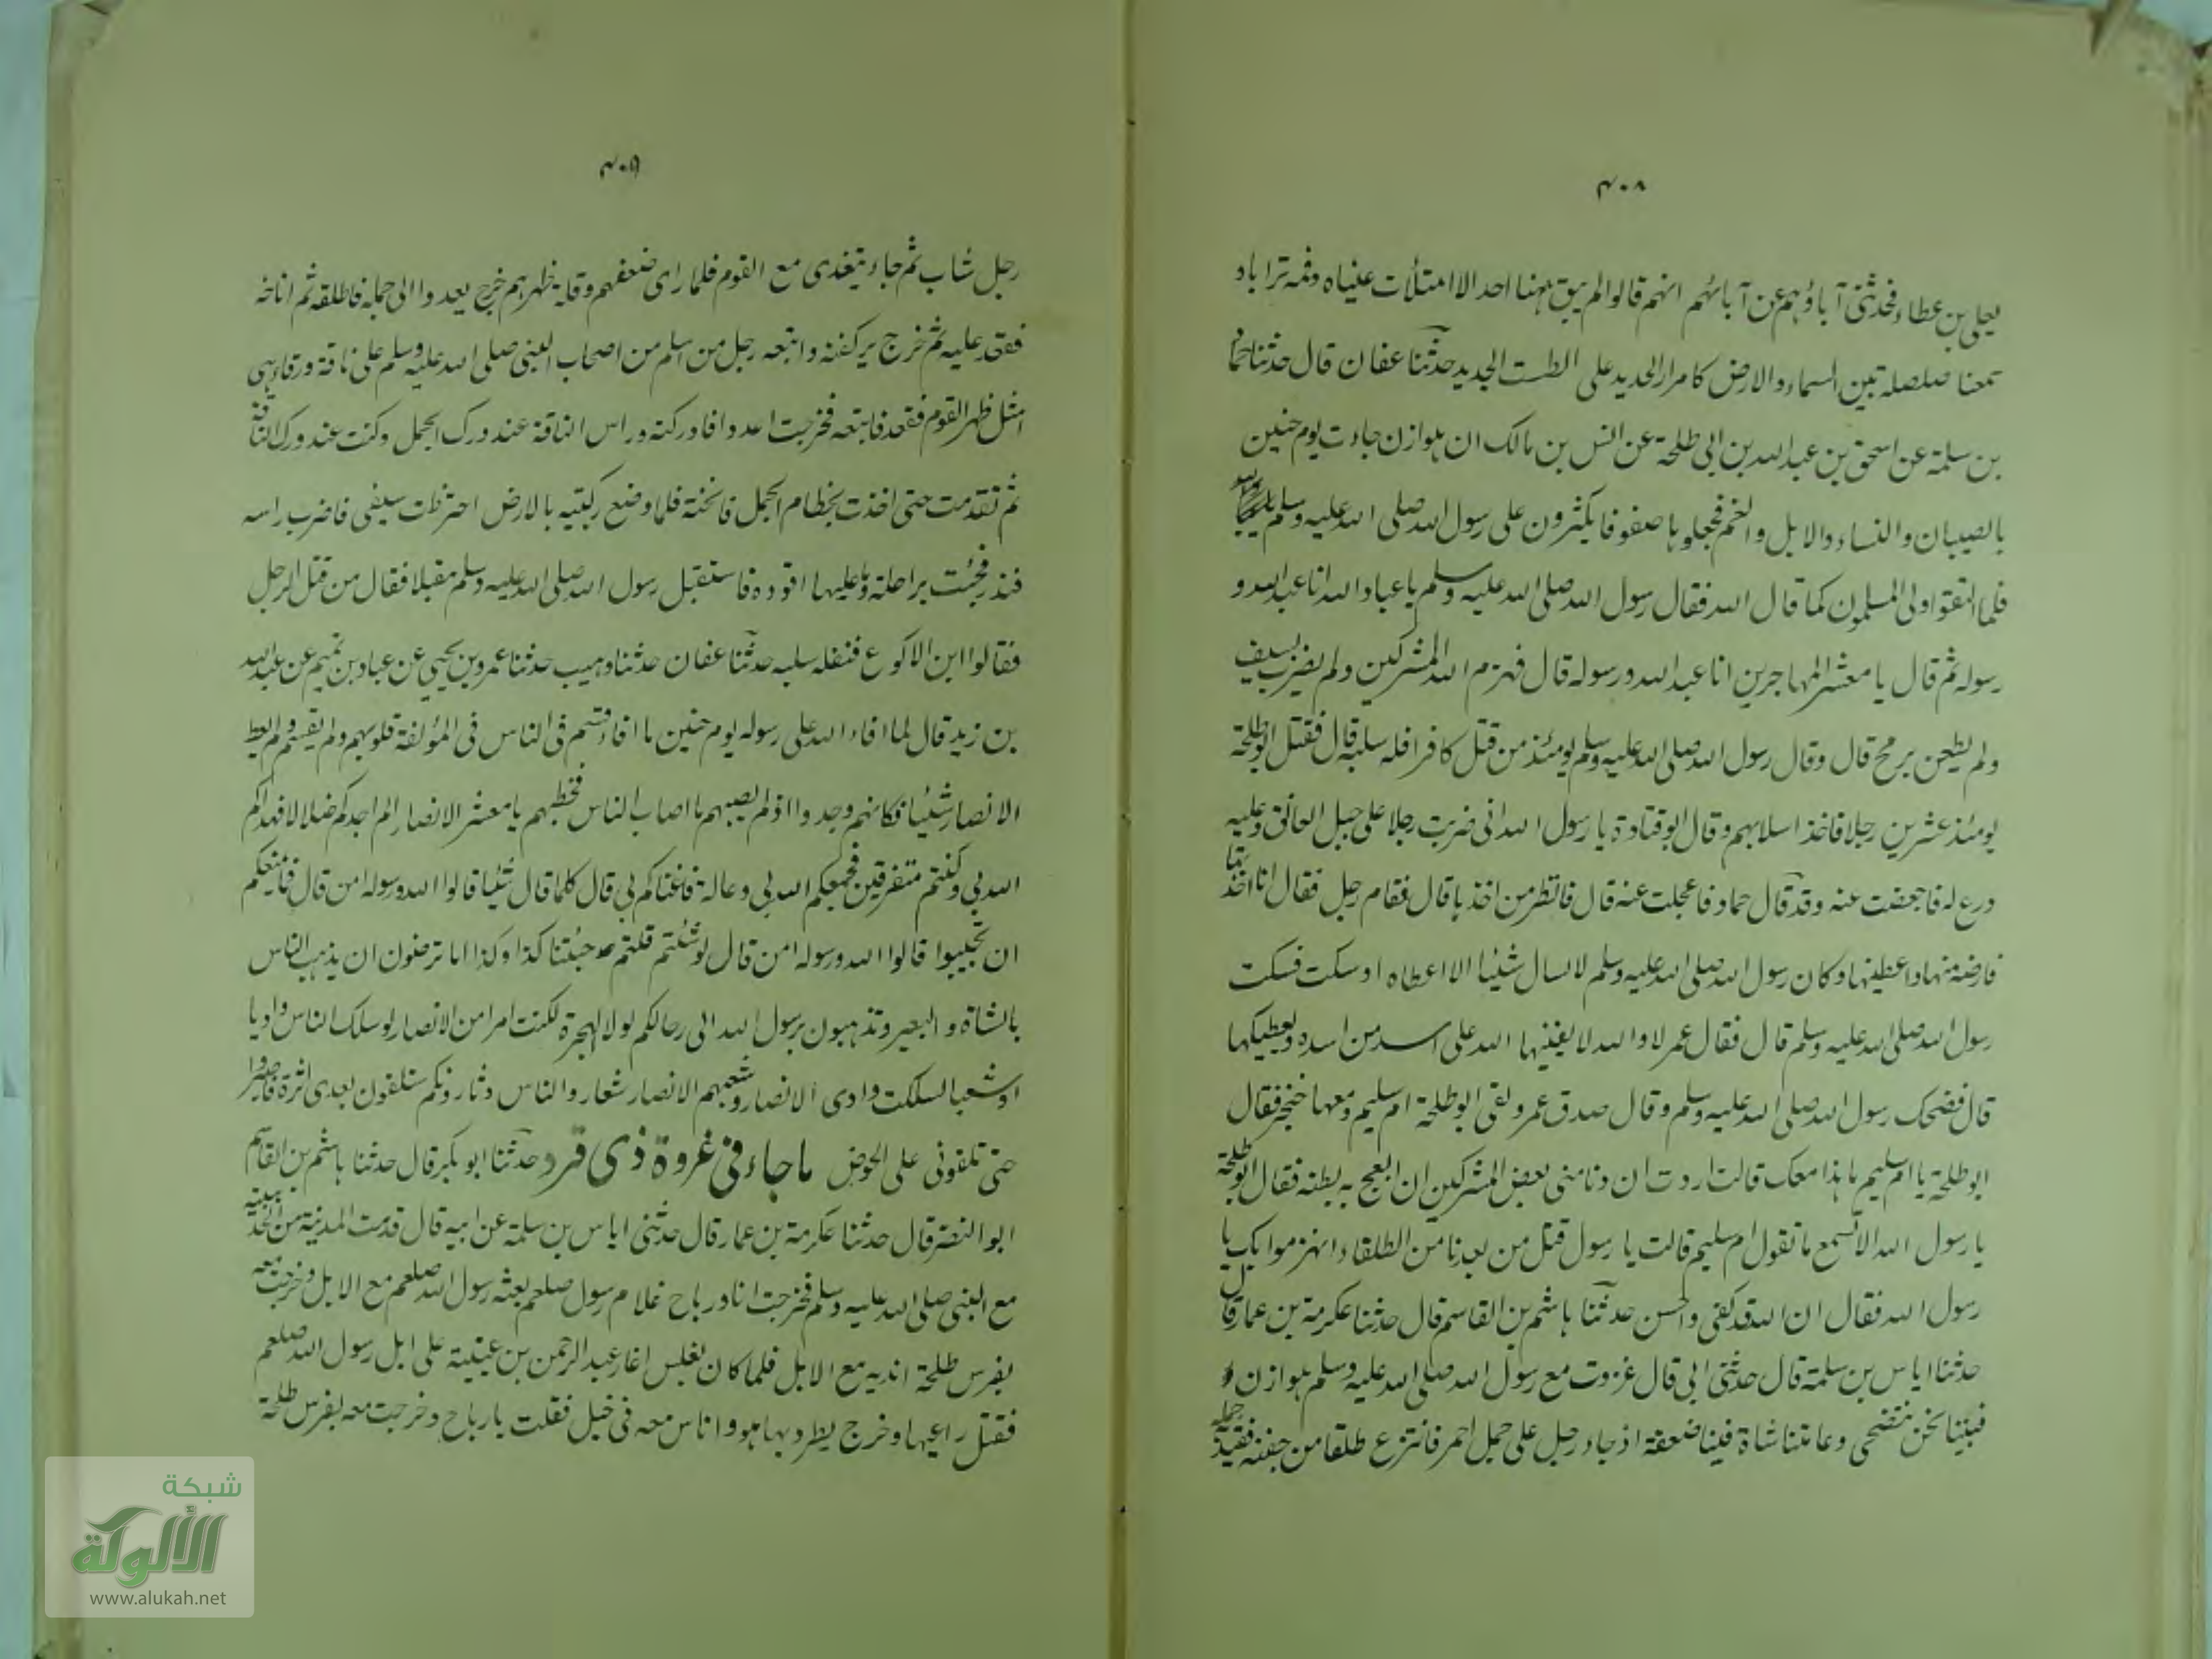 ٤٠٨
يعلى بن عطاء فحدثنى آباؤهم عن آبائهم انهم قالوا لم يبق بهنا احد الا امتلأت عيناه وفمه ترابا و
سمعنا صلصلة بين السماء والارض كامرار الحديد على الطست الجديد حدثنا عفان قال حدثنا حماد
بن سلمة عن اسحق بن عبد الله بن ابى طلحة عن انس بن مالك ان هوازن جاءت يوم حنين
بالصبيان والنساء والابل والغنم فجعلوها صفوفا يكثرون على رسول الله صلى الله عليه وسلم
فلما التقوا ولى المسلمون كما قال الله فقال رسول الله صلى الله عليه وسلم يا عباد الله انا عبد الله و
رسوله ثم قال يا معشر المهاجرين انا عبد الله ورسوله قال فهزم الله المشركين ولم يضرب بسيف
ولم يطعن برمح قال وقال رسول الله صلى الله عليه وسلم يومئذ من قتل كافرا فله سلبه قال فقتل ابو طلحة
يومئذ عشرين رجلا فاخذ اسلابهم وقال ابو قتادة يا رسول الله انى ضربت رجلا على حبل العاتق وعليه
درع له فاجهضت عنه وقد قال حماد فاعجلت عنه قال فانظر من اخذها قال فقام رجل فقال انا اخذتها
فارضه منها واعطنيها وكان رسول الله صلى الله عليه وسلم لا يسال شيئا الا اعطاه او سكت فسكت
رسول الله صلى الله عليه وسلم قال فقال عمر لا والله لا يفيئها الله على اسد من اسده ويعطيكها
قال فضحك رسول الله صلى الله عليه وسلم وقال صدق عمر ولقى ابو طلحة ام سليم ومعها خنجر فقال
ابو طلحة يا ام سليم ما هذا معك قالت اردت ان دنا منى بعض المشركين ان ابعج به بطنه فقال ابو طلحة
يا رسول الله الا تسمع ما تقول ام سليم قالت يا رسول قتل من بعدنا من الطلقاء انهزموا بك يا
رسول الله فقال ان الله قد كفى واحسن حدثنا هاشم بن القاسم قال حدثنا عكرمة بن عمار قال
حدثنا اياس بن سلمة قال حدثنى ابى قال غزوت مع رسول الله صلى الله عليه وسلم هوازن
فبينا نحن نتضحى وعامتنا مشاة فينا ضعفة اذ جاء رجل على جمل احمر فانتزع طلقا من حقبه فقيد جمله
٤٠٩
رجل شاب ثم جاء يتغدى مع القوم فلما راى ضعفهم وقلة ظهرهم خرج يعدوا الى جمله فاطلقه ثم اناخه
فقعد عليه ثم خرج يركضه واتبعه رجل من اسلم من اصحاب النبى صلى الله عليه وسلم على ناقة ورقاء هى
امثل ظهر القوم فقعد فاتبعه فخرجت اعدوا فادركته وراس الناقة عند ورك الجمل وكنت عند ورك الناقة
ثم تقدمت حتى اخذت بخطام الجمل فانخته فلما وضع ركبتيه بالارض اخترطت سيفى فاضرب راسه
فندر فجئت براحلته وما عليها اقوده فاستقبل رسول الله صلى الله عليه وسلم مقبلا فقال من قتل الرجل
فقالوا ابن الاكوع فنفله سلبه حدثنا عفان حدثنا وهيب حدثنا عمرو بن يحيى عن عباد بن تميم عن عبد الله
بن زيد قال لما افاء الله على رسوله يوم حنين ما افاء قسم فى الناس فى المؤلفة قلوبهم ولم يقسم ولم يعط
الانصار شيئا فكانهم وجدوا اذ لم يصبهم ما اصاب الناس فخطبهم يا معشر الانصار الم اجدكم ضلالا فهداكم
الله بى وكنتم متفرقين فجمعكم الله بى وعالة فاغناكم بى قال كلما قال شيئا قالوا الله ورسوله امن قال فما يمنعكم
ان تجيبوا قالوا الله ورسوله امن قال لو شئتم قلتم جئتنا كذا وكذا اما ترضون ان يذهب الناس
بالشاة والبعير وتذهبون برسول الله الى رحالكم لولا الهجرة لكنت امرا من الانصار لو سلك الناس واديا
او شعبا لسلكت وادى الانصار وشعبهم الانصار شعار والناس دثار وانكم ستلقون بعدى اثرة فاصبروا
حتى تلقونى على الحوض ما جاء فى غزوة ذى قرد حدثنا ابو بكر قال حدثنا هاشم بن القاسم
ابو النضر قال حدثنا عكرمة بن عمار قال حدثنى اياس بن سلمة عن ابيه قال قدمت المدينة من الحديبية
مع النبى صلى الله عليه وسلم فخرجت انا ورباح غلام رسول صلعم بعثه رسول الله صلعم مع الابل وخرجت معه
بفرس طلحة انديه مع الابل فلما كان بغلس اغار عبد الرحمن بن عيينة على ابل رسول الله صلعم
فقتل راعيها وخرج يطردها هو واناس معه فى خيل فقلت يا رباح وخرجت معه بفرس طلحة
شبكة
الألوكة
www.alukah.net